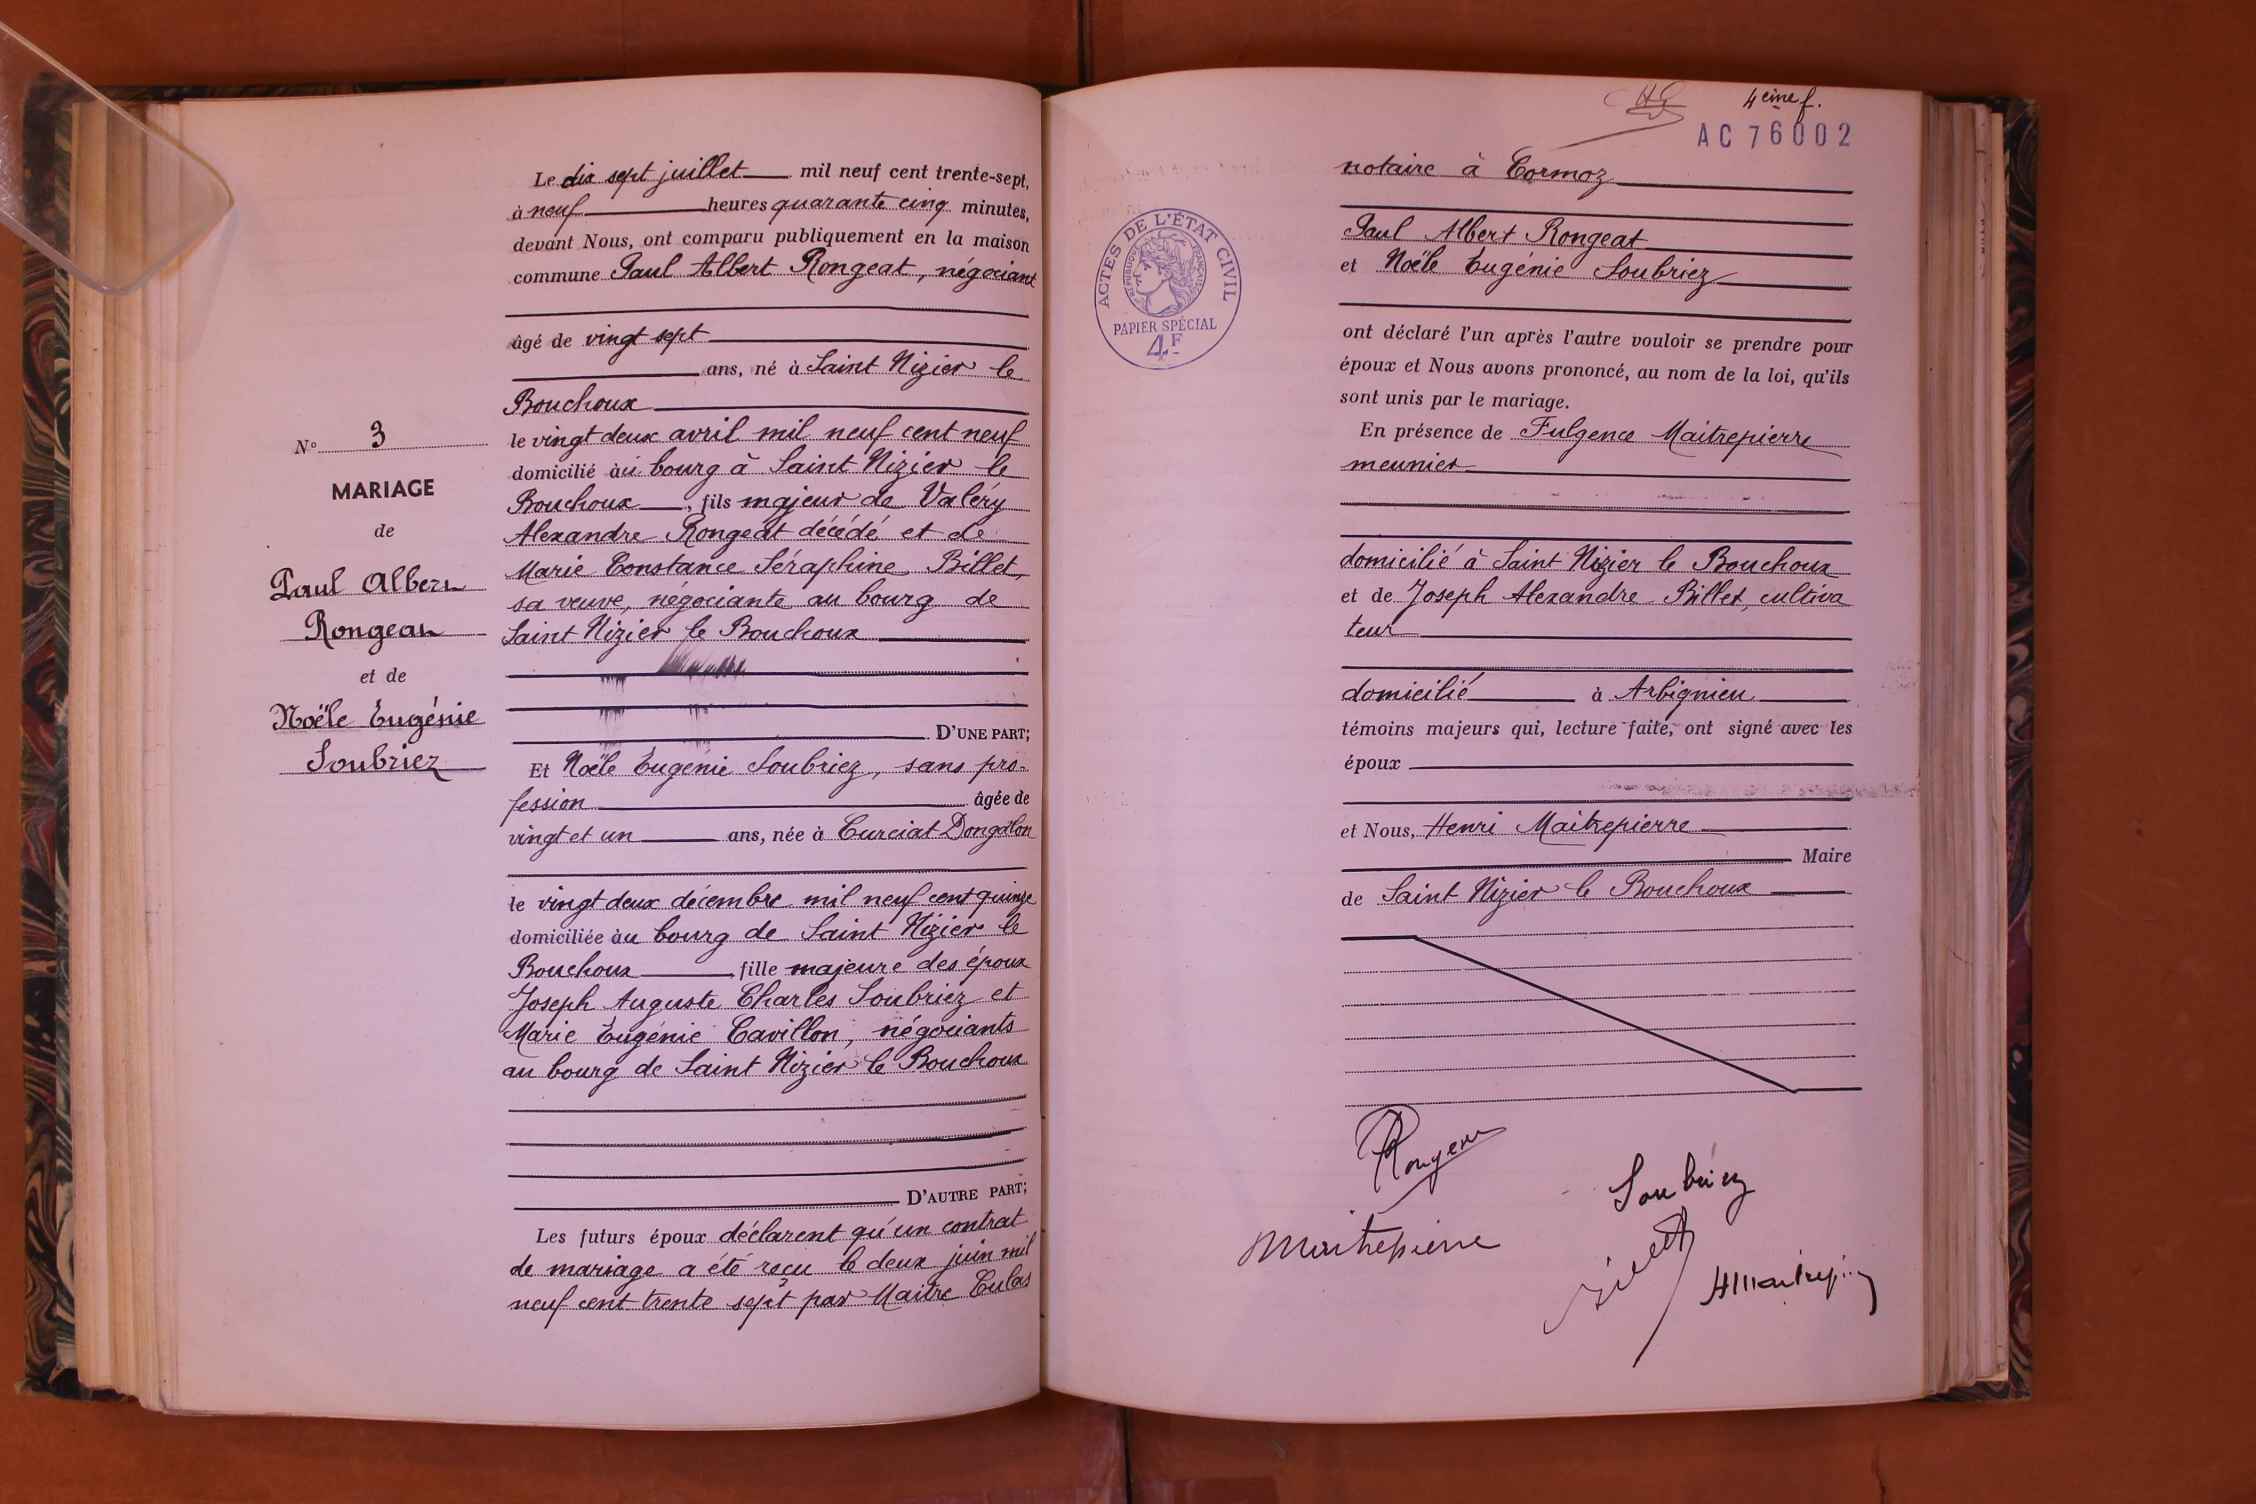 N° 3
MARIAGE
de
Paul Albert
Rongeat
et de
Noële Eugénie
Soubriez
Le dix sept juillet mil neuf cent trente-sept,
à neuf heures quarante cinq minutes,
devant Nous, ont comparu publiquement en la maison
commune Paul Albert Rongeat, négociant
âgé de vingt sept
ans, né à Saint Nizier le
Bouchoux
le vingt deux avril mil neuf cent neuf
domicilié au bourg à Saint Nizier le
Bouchoux, fils majeur de Valéry
Alexandre Rongeat décédé et de
Marie Constance Séraphine Billet,
sa veuve, négociante au bourg de
Saint Nizier le Bouchoux
D'UNE PART;
Et Noële Eugénie Soubriez, sans pro-
fession âgée de
vingt et un ans, née à Curciat Dongalon
le vingt deux décembre mil neuf cent quinze
domiciliée au bourg de Saint Nizier le
Bouchoux fille majeure des époux
Joseph Auguste Charles Soubriez et
Marie Eugénie Cavillon, négociants
au bourg de Saint Nizier le Bouchoux
D'AUTRE PART;
Les futurs époux déclarent qu'un contrat
de mariage a été reçu le deux juin mil
neuf cent trente sept par Maitre Culas
4eime f.
AC 76002
ACTES DE L'ÉTAT CIVIL
RÉPUBLIQUE FRANÇAISE
PAPIER SPÉCIAL
4F
notaire à Cormoz
Paul Albert Rongeat
et Noële Eugénie Soubriez
ont déclaré l'un après l'autre vouloir se prendre pour
époux et Nous avons prononcé, au nom de la loi, qu'ils
sont unis par le mariage.
En présence de Fulgence Maitrepierre
meunier
domicilié à Saint Nizier le Bouchoux
et de Joseph Alexandre Billet, cultiva
teur
domicilié à Arbignieu
témoins majeurs qui, lecture faite, ont signé avec les
époux
et Nous, Henri Maitrepierre
Maire
de Saint Nizier le Bouchoux
Rongeat
Soubriez
Maitrepierre
Billet
H Maitrepierre